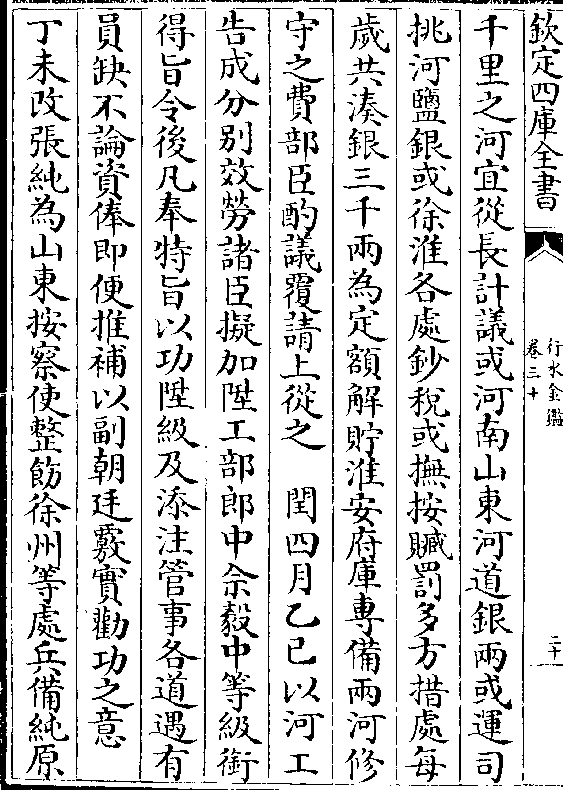 欽定四庫全書
行水金鑑
卷三十
二十
千里之河宜從長計議或河南山東河道銀兩或運司
挑河鹽銀或徐淮各處鈔稅或撫按贓罰多方措處每
歲共湊銀三千兩為定額解貯淮安府庫專備兩河修
守之費部臣酌議覆請上從之　閏四月乙巳以河工
告成分别效勞諸臣擬加陞工部郎中佘毅中等級銜
得旨令後凡奉特旨以功陞級及添注管事各道遇有
員缺不論資俸即便推補以副朝廷覈實勸功之意
丁未改張純為山東按察使整飭徐州等處兵備純原